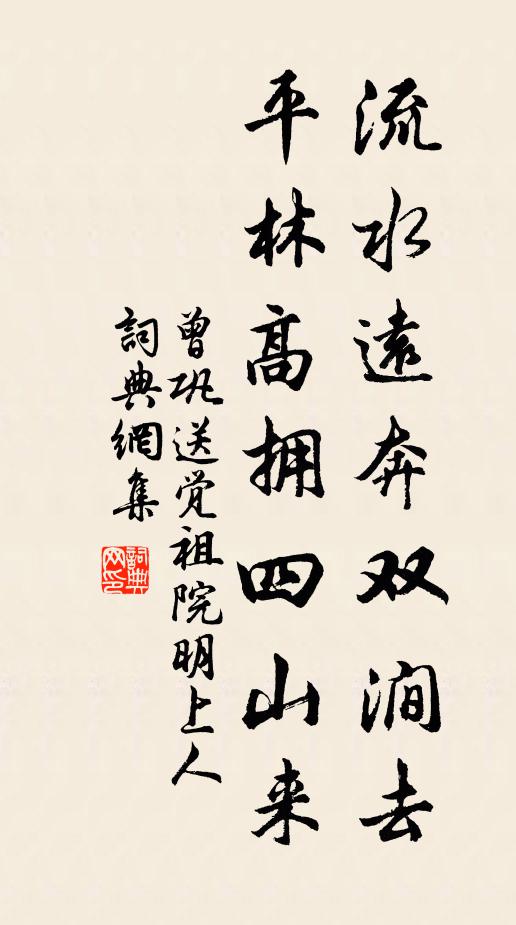 流水遠奔双澗去
平林高拥四山来
曾巩送觉祖院明上人
詞典網集
詞典
网印